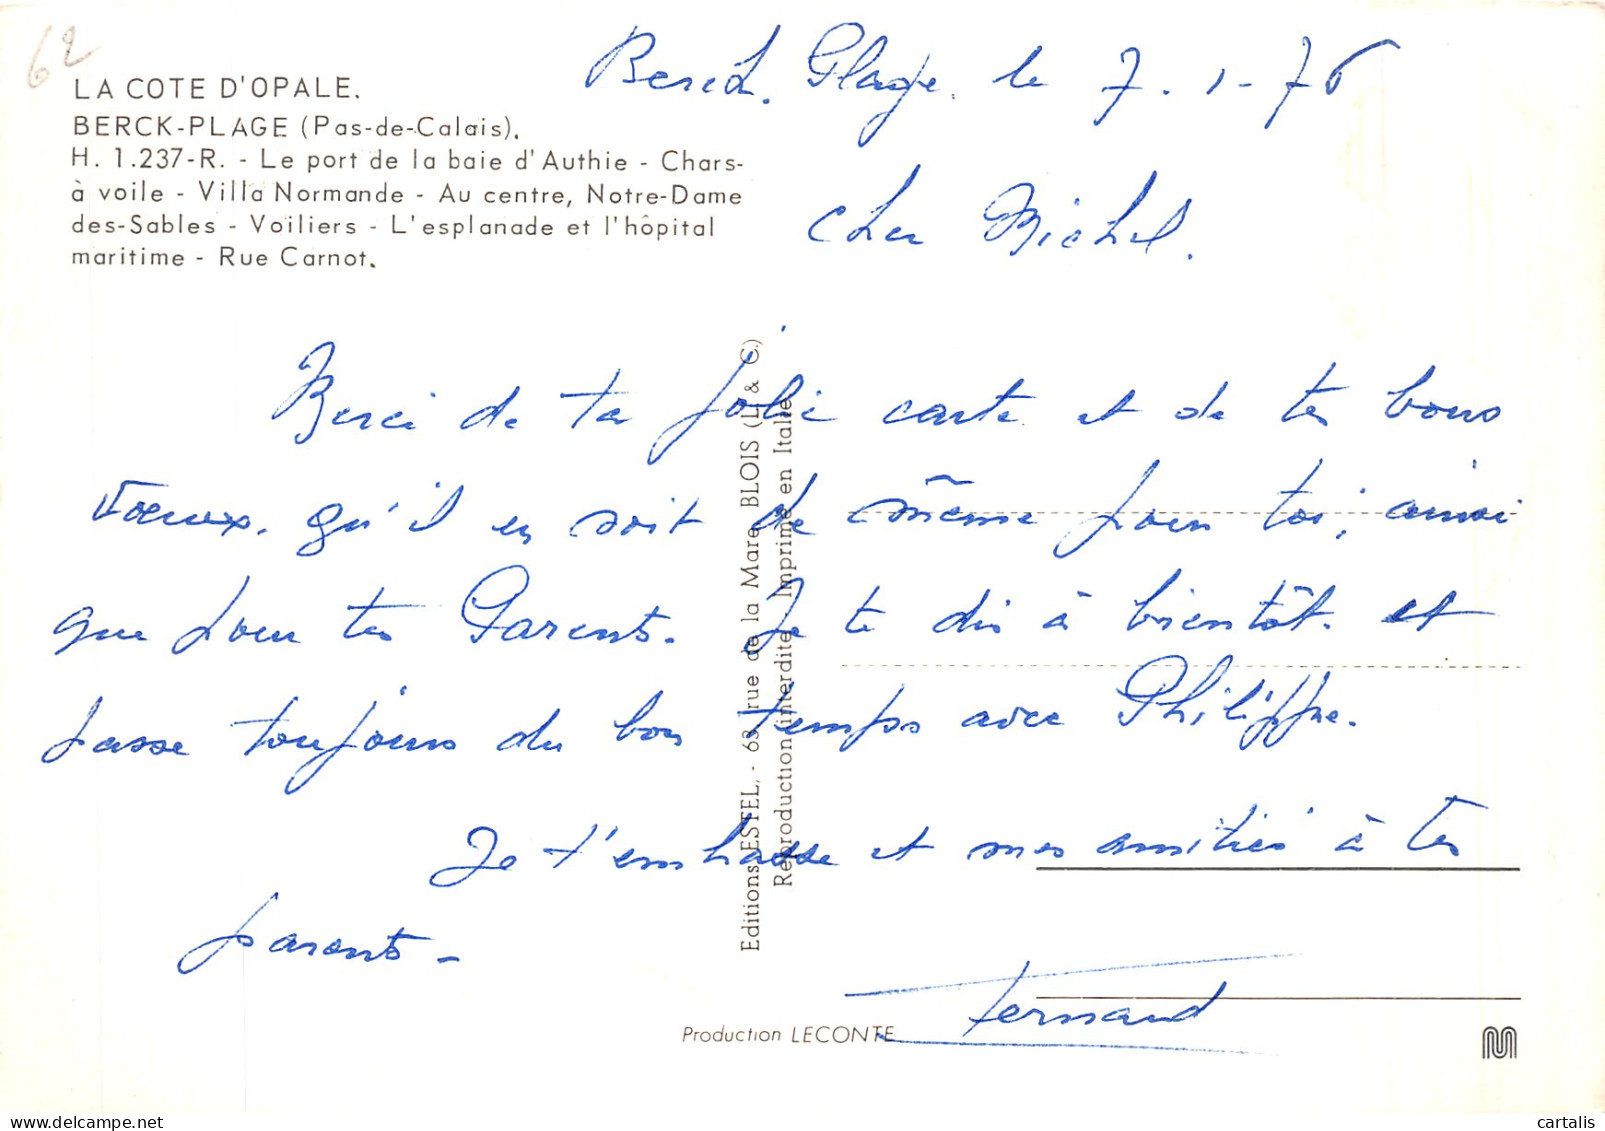 62
LA COTE D'OPALE.
BERCK-PLAGE (Pas-de-Calais).
H. 1.237-R. - Le port de la baie d'Authie - Chars-
à voile - Villa Normande - Au centre, Notre-Dame
des-Sables - Voiliers - L'esplanade et l'hôpital
maritime - Rue Carnot.
Berck. Plage. le 7. 1-76
Cher Michel.
Merci de ta jolie carte et de tes bons
voeux. qu'il en soit de même pour toi, ainsi
que pour tes Parents. Je te dis à bientôt. et
passe toujours du bon temps avec Philippe.
Je t'embrasse et mes amitiés à tes
parents -
Fernand
Editions ESTEL, - 63, rue de la Mare BLOIS (L. & C.)
Reproduction interdite Imprimé en Italie
Production LECONTE
cartalis